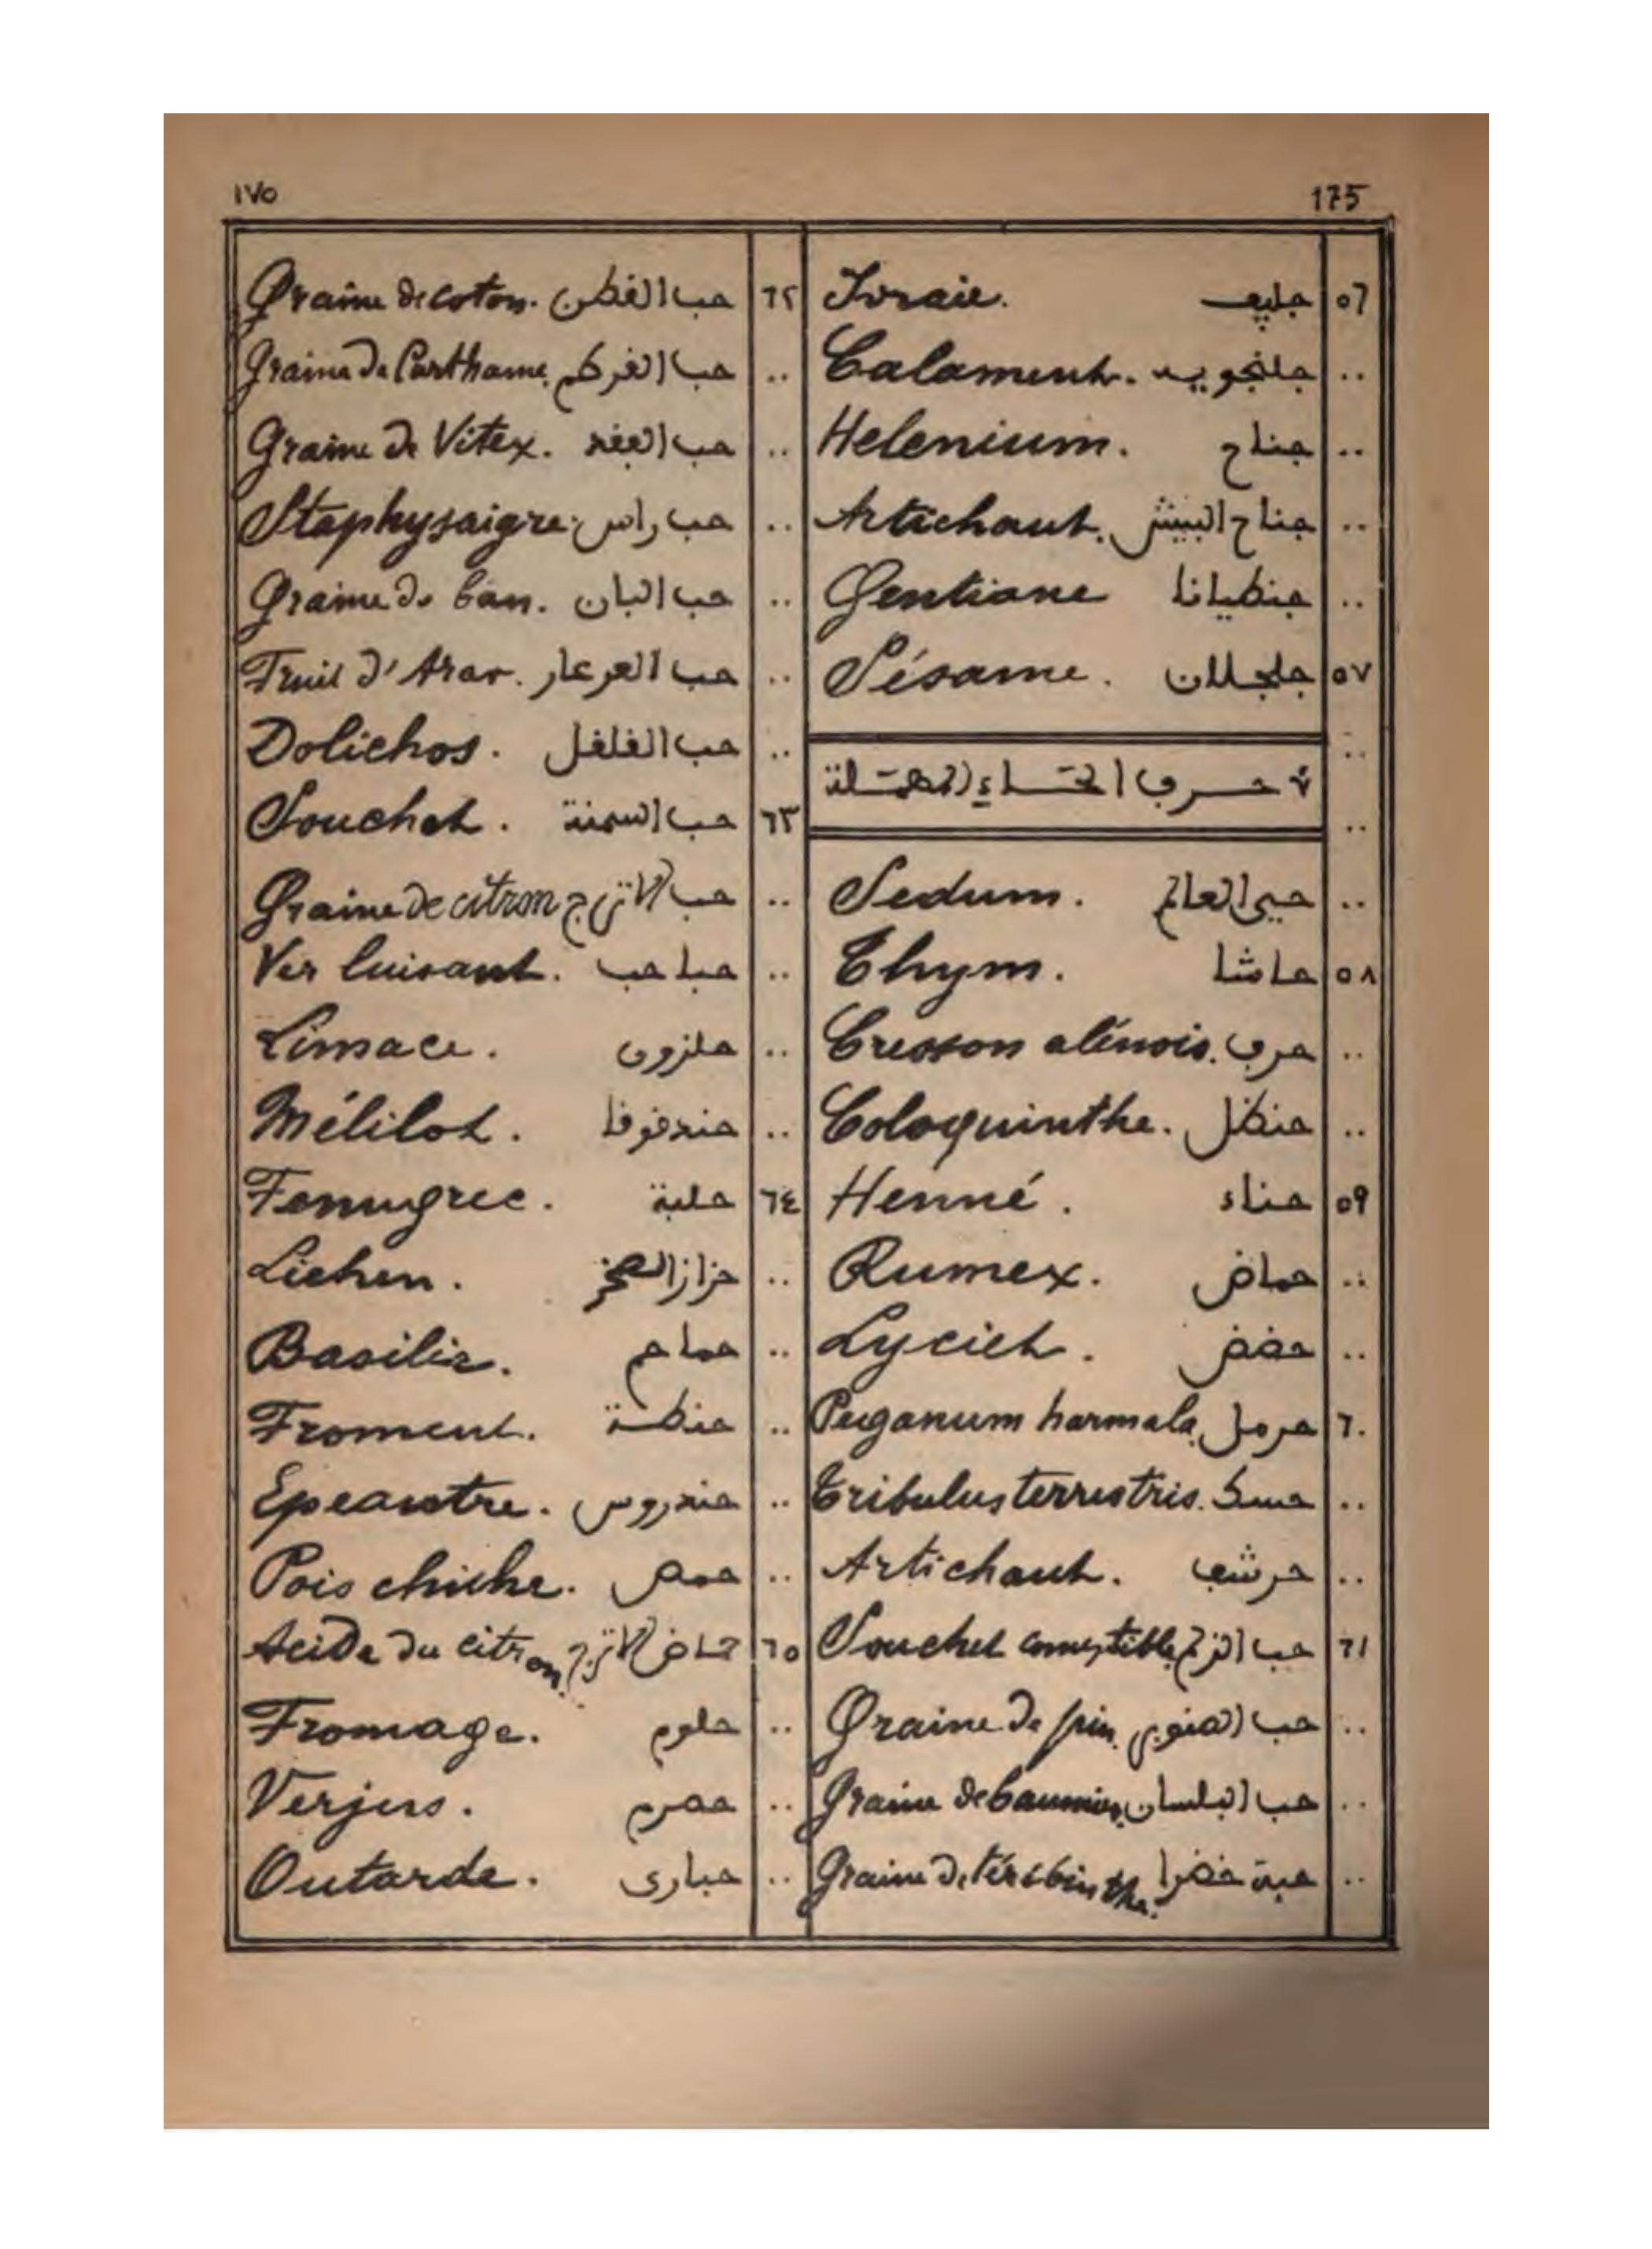 ١٧٥ 175
٥٦ جليف Ivraie.
.. جلنجويه Calament.
.. جناح Helenium.
.. جناح النيش Artichaut.
.. جنطيانا Gentiane
٥٧ جلجلان Sésame.
.. حرف الحاء المهملة
.. حي العالم Sedum.
٥٨ حاشا Thym.
.. حرف Cresson alénois.
.. حنظل Coloquinthe.
٥٩ حناء Henné.
.. حماض Rumex.
.. حضض Lyciet.
٦٠ حرمل Peganum harmala.
.. حسك Tribulus terrestris.
.. حرشف Artichaut.
٦١ حب الزلم Souchet comestible.
.. حب الصنوبر Graine de pin.
.. حب البلسان Graine de baumier.
.. حبة خضرا Graine de térébinthe.
٦٢ حب القطن Graine de coton.
.. حب القرطم Graine de Carthame.
.. حب الفقد Graine de Vitex.
.. حب راس Staphysaigre.
.. حب البان Graine de ban.
.. حب العرعار Fruit d'Arar.
.. حب الفلفل Dolichos.
٦٣ حب السمنة Souchet.
.. حب الاترج Graine de citron
.. حباحب Ver luisant.
.. حلزون Limace.
.. حندقوقا Mélilot.
٦٤ حلبة Fenugrec.
.. حزاز الصخر Lichen.
.. حماحم Basilic.
.. حنطة Froment.
.. حندروس Epeautre.
.. حمص Pois chiche.
٦٥ حماض الاترج Acide du citron.
.. حلوم Fromage.
.. حصرم Verjus.
.. حبارى Outarde.